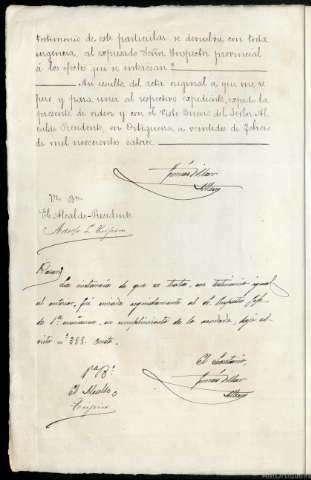 testimonio de este particular se devuelva con toda
urgencia al expresado Señor Inspector provincial
á los efectos que se interesan."
Así resulta del acta original á que me re-
fiero y para unir al respectivo expediente, expido la
presente de orden y con el Visto Bueno del Señor Al-
calde Presidente, en Ortigueira á veintidos de Febrero
de mil novecientos catorce.
Tomás
Vto. Bno.
El Alcalde-Presidente
Adolfo L.
La instancia de que se trata, con testimonio igual
al anterior, fué enviada seguidamente al Sr. Inspector Jefe
de 1ª enseñanza, en cumplimiento de lo acordado, bajo el
nº 388. Conste.
El Secretario,
Tomás
Vto. Bº
El Alcalde